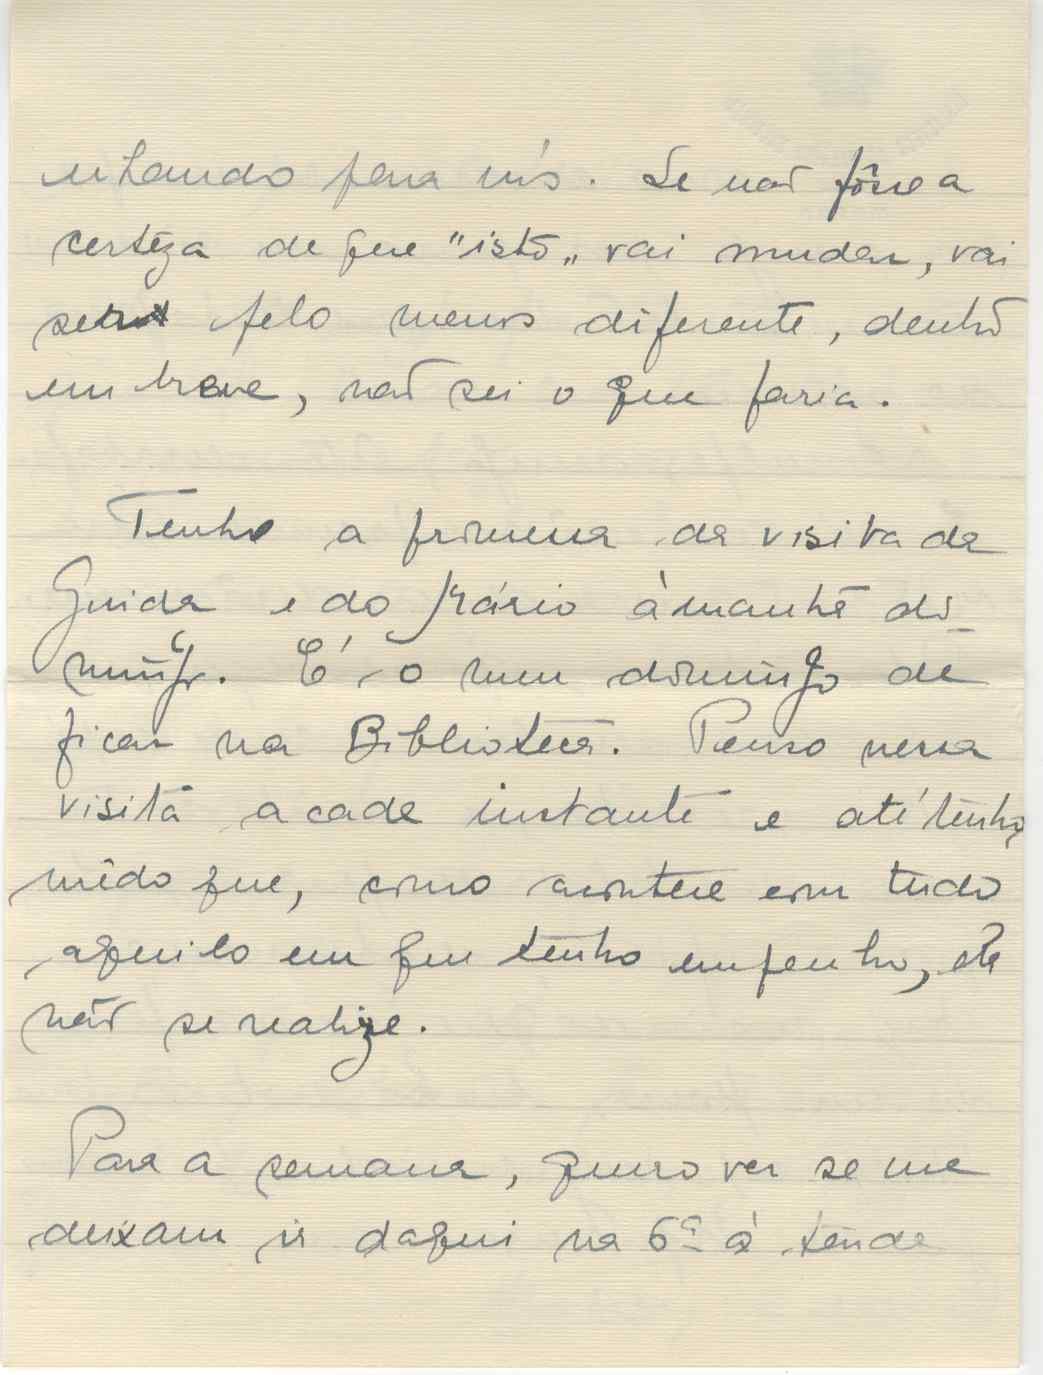 olhando para nós. Se não fôsse a
certeza de que "isto" vai mudar, vai
ser pelo menos diferente, dentro
em breve, não sei o que faria.
Tenho a promessa da visita da
Guida e do Mário àmanhã do-
mingo. É o meu domingo de
ficar na Biblioteca. Penso nessa
visita a cada instante e até tenho
mêdo que, como acontece com tudo
aquilo em que tenho empenho, ela
não se realize.
Para a semana, quero ver se me
deixam ir daqui na 6ª à tarde